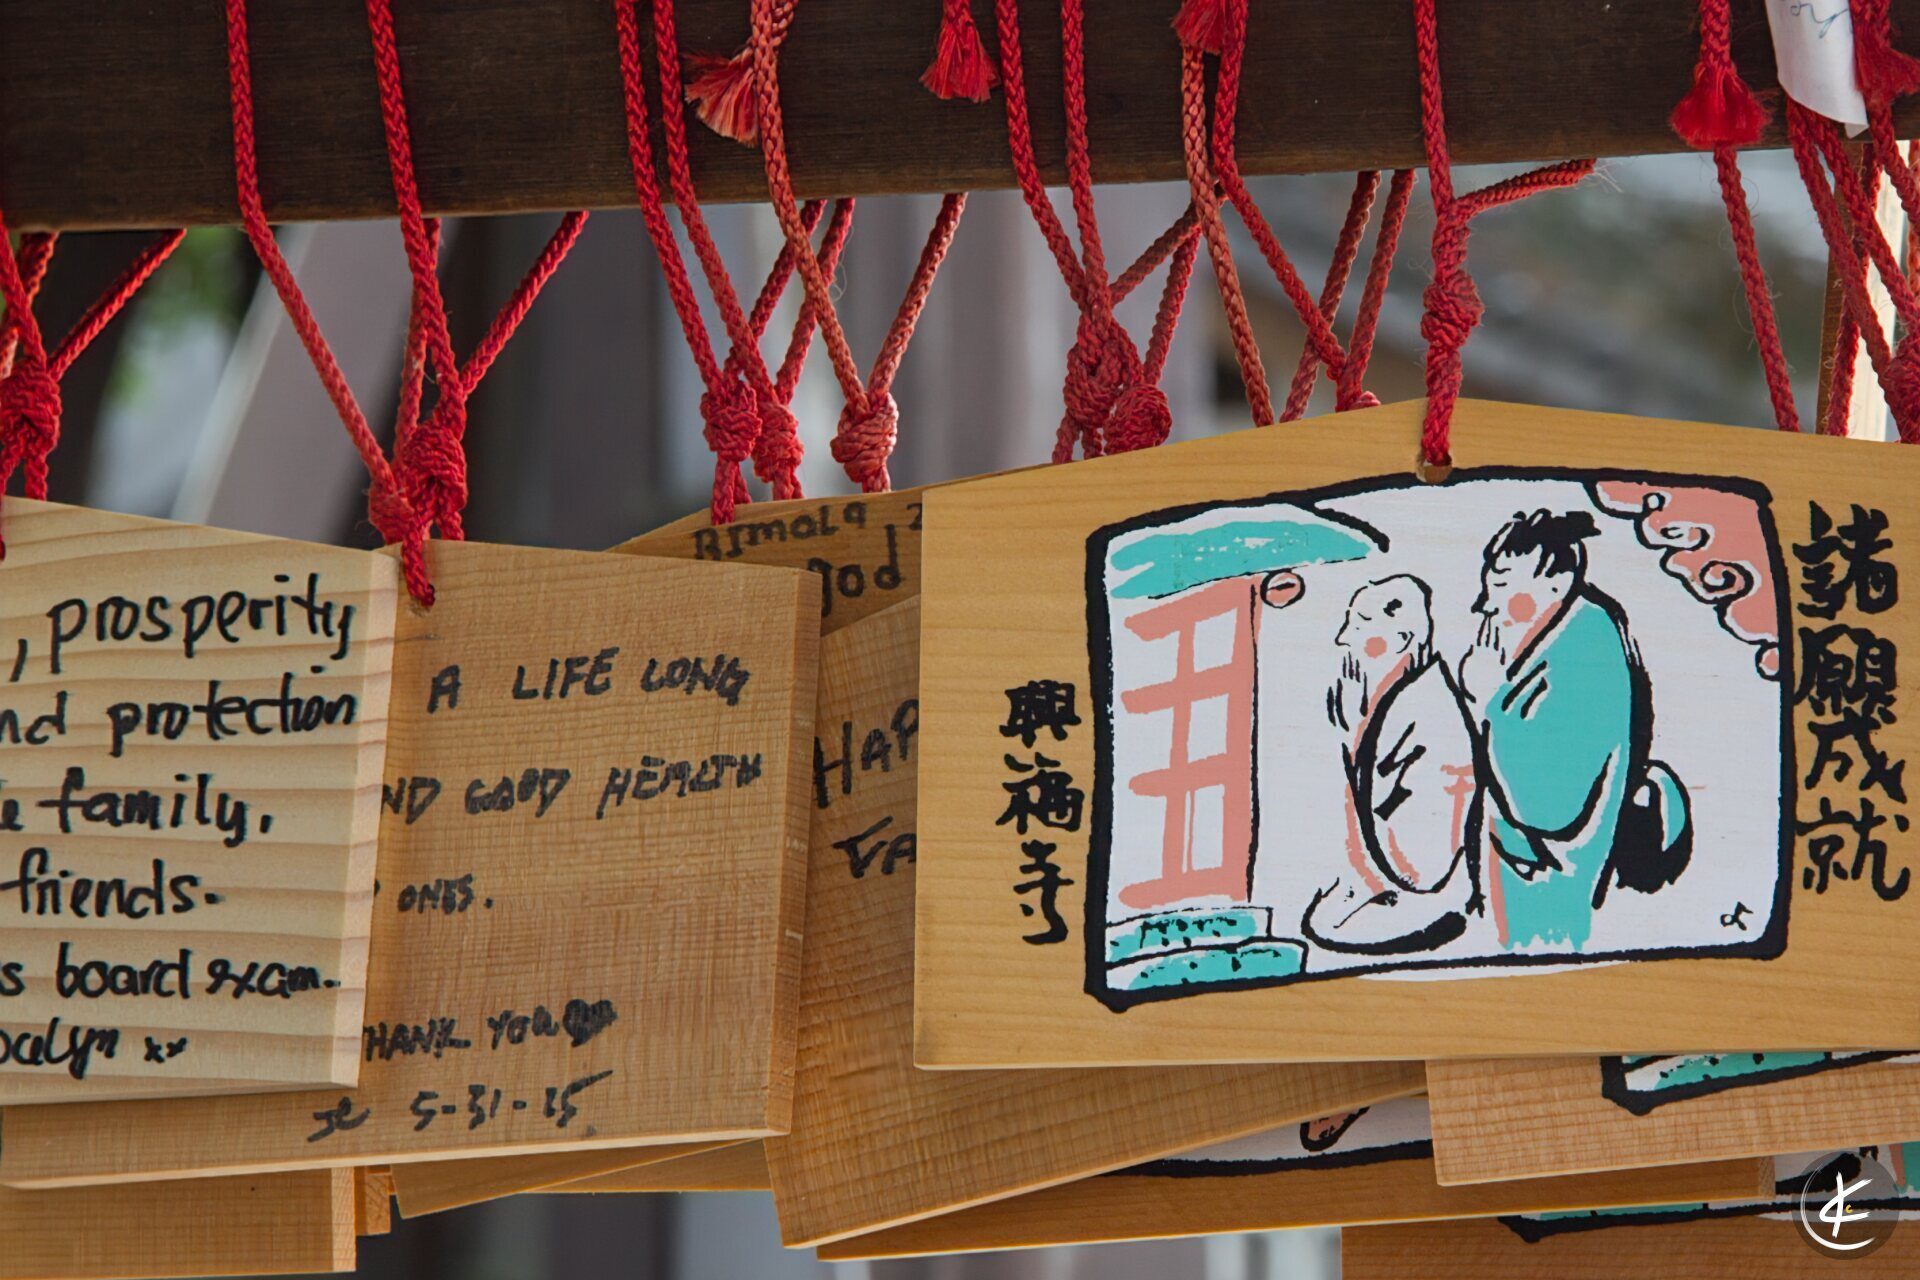 , prosperity
nd protection
family,
friends.
s board exam.
ocelyn xx
A LIFE LONG
ND GOOD HEALTH
ONES.
THANK YOU
5-31-15
god
HAP
FA
諸願成就
興福寺